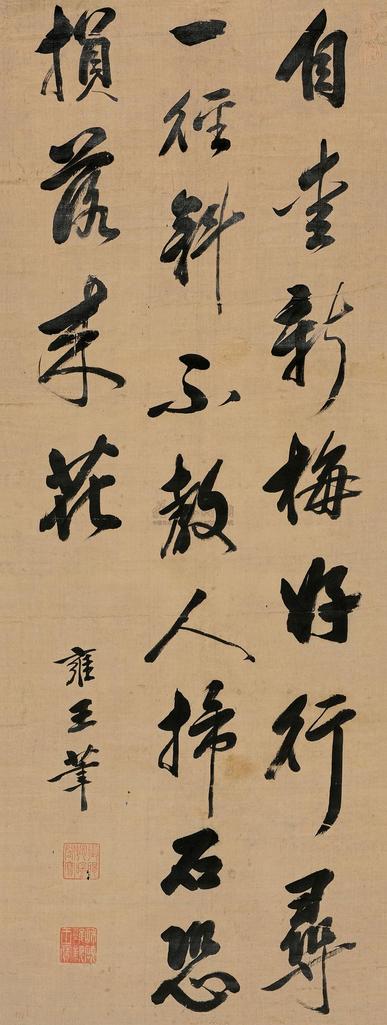 自愛新梅好行尋
一徑斜不教人掃石恐
損落来花
雍王筆